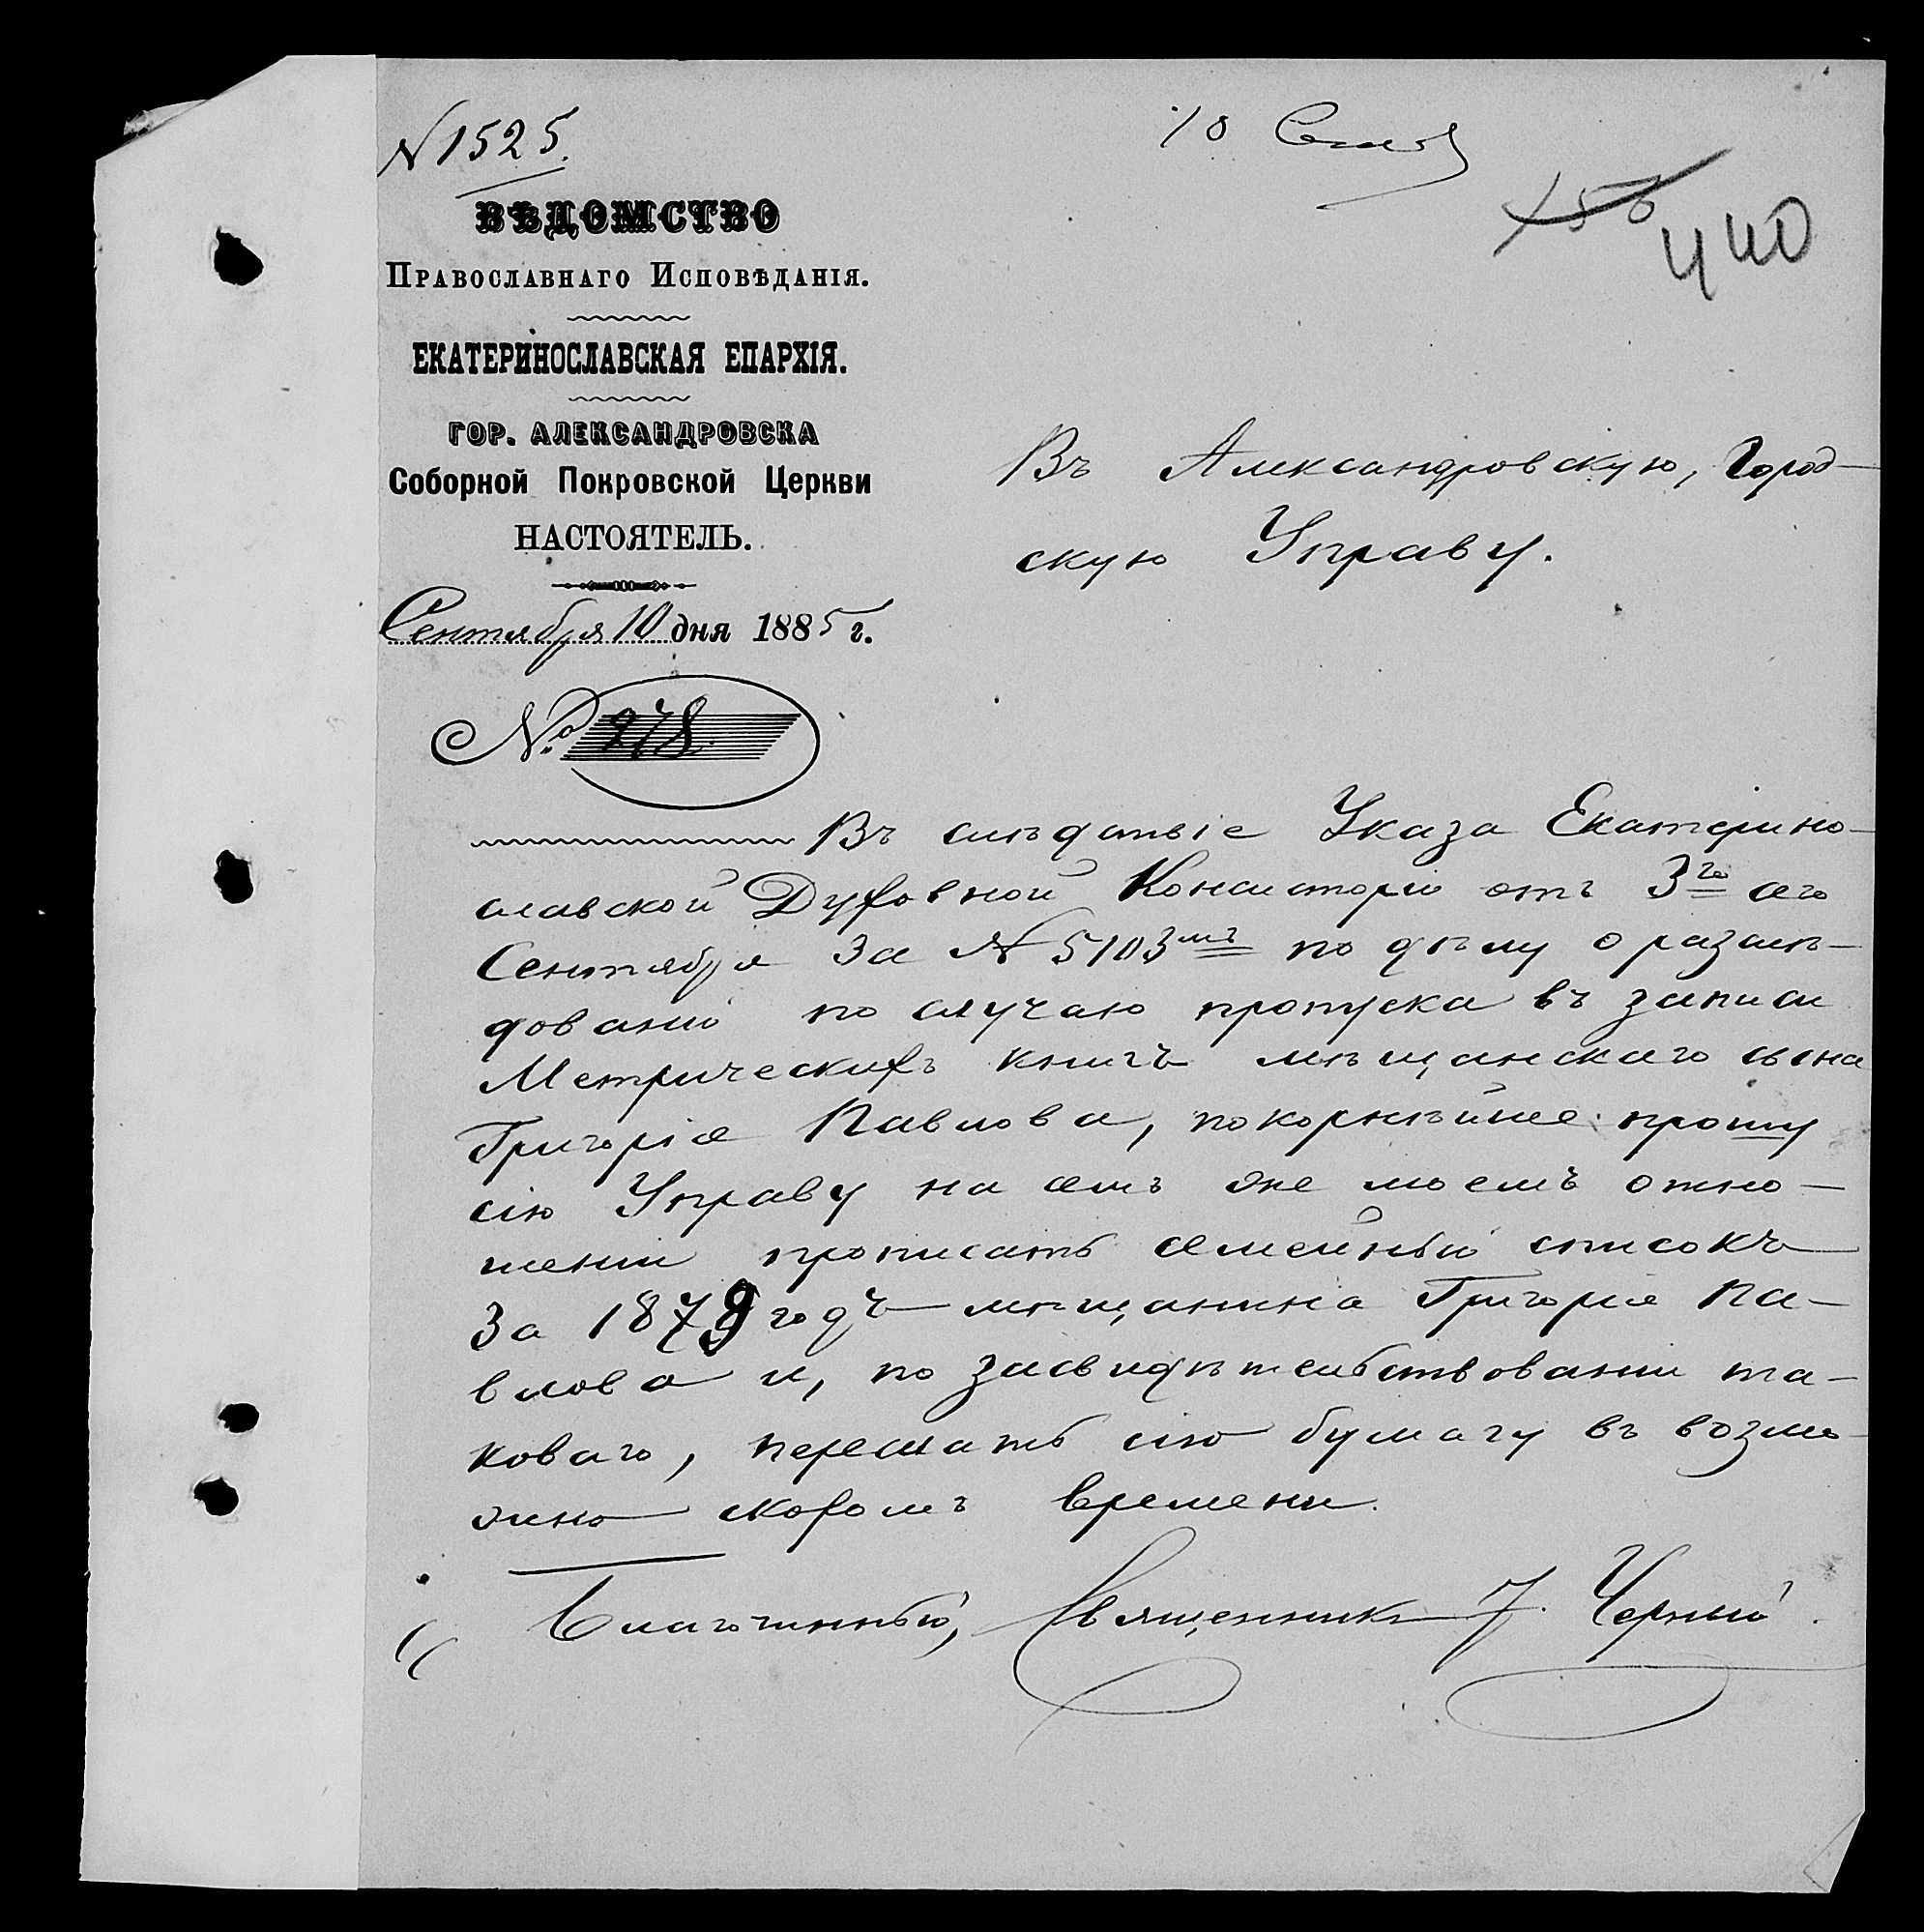 N 1525.
10 Сент
156
440
ВѢДОМСТВО
ПРАВОСЛАВНАГО ИСПОВѢДАНІЯ.
ЕКАТЕРИНОСЛАВСКАЯ ЕПАРХІЯ.
ГОР. АЛЕКСАНДРОВСКА
Соборной Покровской Церкви
НАСТОЯТЕЛЬ.
Сентября 10 дня 1885 г.
№ 278.
Въ Александровскую, Город-
скую Управу.
Въ слѣдствіе Указа Екатерино-
славской Духовной Консисторіи отъ 3го сего
Сентября за N 5103мъ по дѣлу о разслѣ-
дованіи по случаю пропуска въ записи
Метрическихъ книгъ мѣщанскаго сына
Григорія Павлова, покорнѣйше прошу
сію Управу на семъ же моемъ отно-
шеніи прописать семейный списокъ
за 1879 годъ мѣщанина Григорія Па-
влова и, по засвидѣтельствованіи та-
коваго, переслать сію бумагу въ возмо-
жно скоромъ времени.
Благочинный, Священникъ І. Черный.